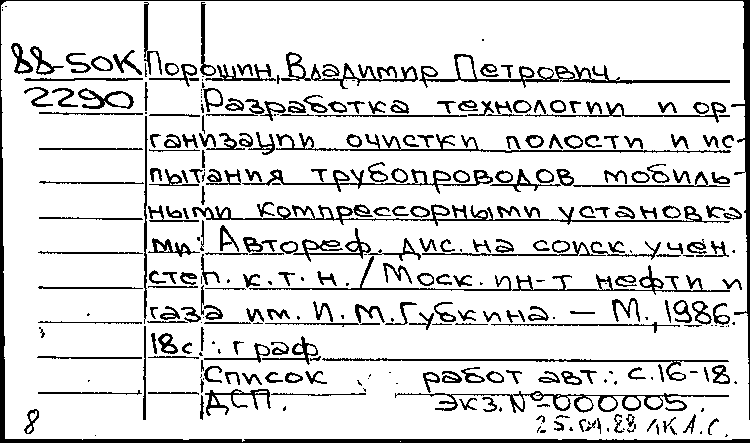 88-50К Порошин, Владимир Петрович.
2290 Разработка технологии и ор-
ганизации очистки полости и ис-
пытания трубопроводов мобиль-
ными компрессорными установка
ми: Автореф. дис. на соиск. учен.
степ. к.т.н. / Моск. ин-т нефти и
газа им. И.М. Губкина. — М., 1986.-
18с.: граф
Список работ авт.: с.16-18.
ДСП. экз. №000005.
8 25.04.88